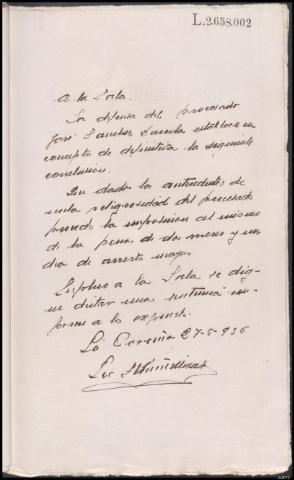 L.2658.002
A la Sala.
La defensa del procesado
José Sanchez establece en
concepto de definitiva la siguiente
conclusión.
Que dados los antecedentes de
religiosidad del procesado
procede la imposición al mismo
de la pena de dos meses y un
dia de arresto mayor.
Suplico a la Sala se dig-
ne dictar una sentencia con-
forme a lo expuesto.
La Coruña 27-5-936